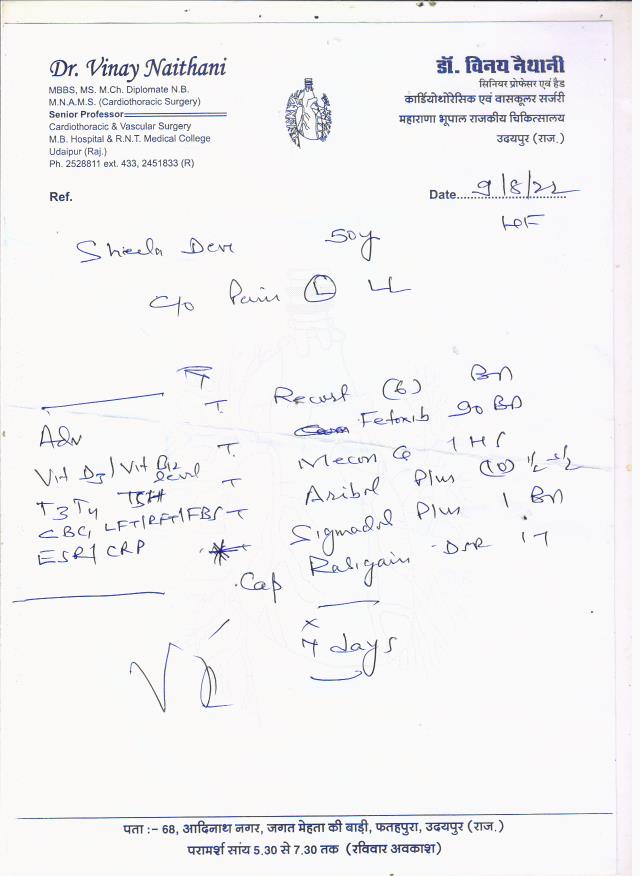 Dr. Vinay Naithani
MBBS, MS. M.Ch. Diplomate N.B.
M.N.A.M.S. (Cardiothoracic Surgery)
Senior Professor
Cardiothoracic & Vascular Surgery
M.B. Hospital & R.N.T. Medical College
Udaipur (Raj.)
Ph. 2528811 ext. 433, 2451833 (R)
डॉ. विनय नैथानी
सिनियर प्रोफेसर एवं हैड
कार्डियोथोरेसिक एवं वासकूलर सर्जरी
महाराणा भूपाल राजकीय चिकित्सालय
उदयपुर (राज.)
Ref.
Date 9/8/22
Sheela Devi 50y
C/o Pain (L) LL
Adv
Vit D3/Vit B12
level
T3 T4 TSH
CBC, LFT/RFT/FBS
ESR/CRP
T. (6) BD
T. Fetoxib 90 BD
T. 1 HS
T Plus (10) 1/2-1/2
T Plus 1 BD
Cap DSR 1
x
7 days
पता :- 68, आदिनाथ नगर, जगत मेहता की बाड़ी, फतहपुरा, उदयपुर (राज.)
परामर्श सांय 5.30 से 7.30 तक (रविवार अवकाश)